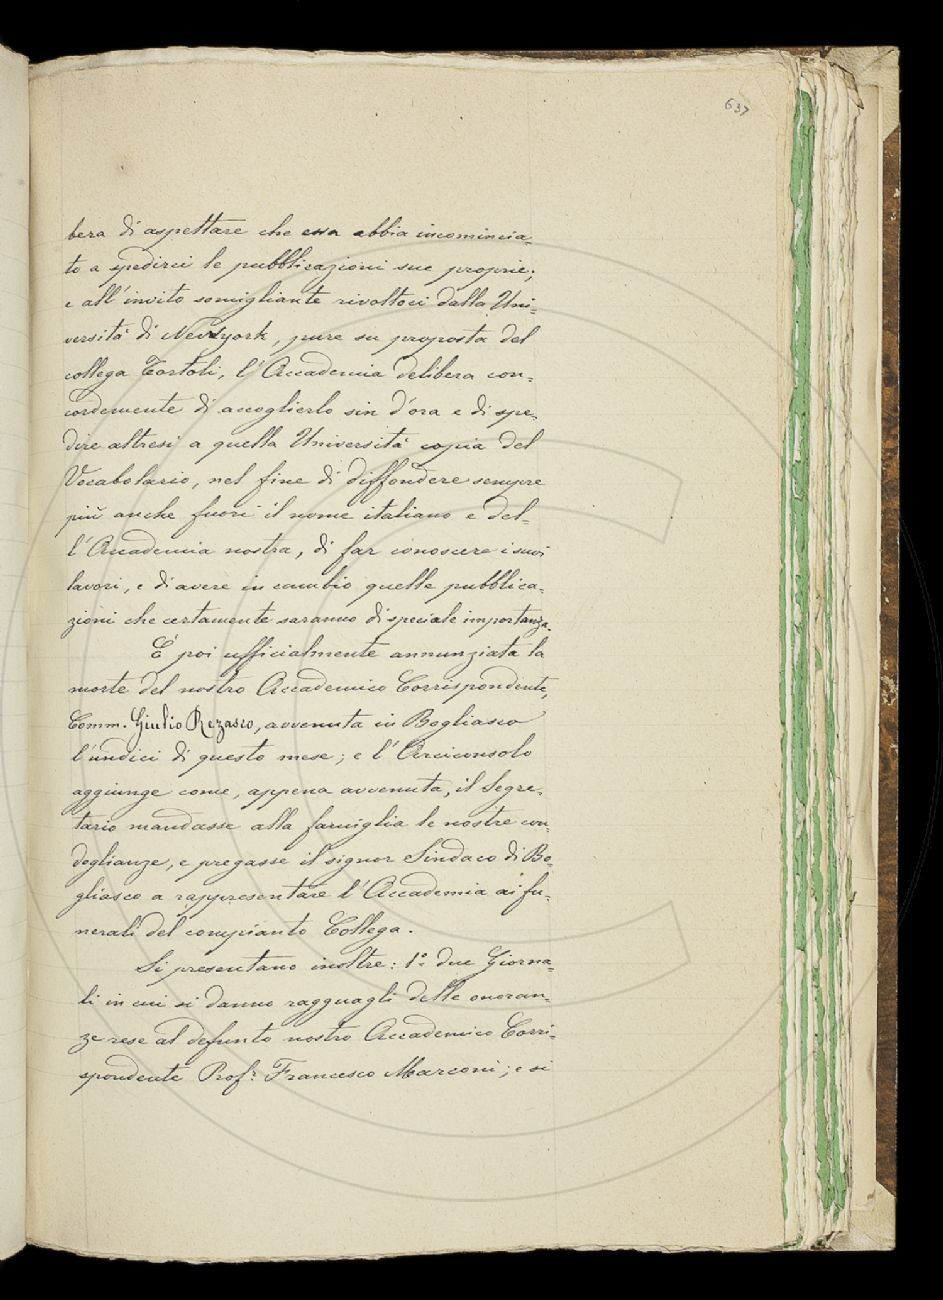 637
bera di aspettare che essa abbia incomincia-
to a spedirci le pubblicazioni sue proprie;
e all'invito somigliante rivoltoci dalla Uni-
versità di Newyork, pure su proposta del
collega Tortoli, l'Accademia delibera con-
cordemente di accoglierlo sin d'ora e di spe-
dire altresì a quella Università copia del
Vocabolario, nel fine di diffondere sempre
più anche fuori il nome italiano e del-
l'Accademia nostra, di far conoscere i suoi
lavori, e di avere in cambio quelle pubblica-
zioni che certamente saranno di speciale importanza.
È poi ufficialmente annunziata la
morte del nostro Accademico Corrispondente,
Comm. Giulio Rezasco, avvenuta in Bogliasco
l'undici di questo mese; e l'Arciconsolo
aggiunge come, appena avvenuta, il Segre-
tario mandasse alla famiglia le nostre con-
doglianze, e pregasse il signor Sindaco di Bo-
gliasco a rappresentare l'Accademia ai fu-
nerali del compianto Collega.
Si presentano inoltre: 1º due Giorna-
li in cui si danno ragguagli delle onoran-
ze rese al defunto nostro Accademico Corri-
spondente Prof.r Francesco Marconi; e si